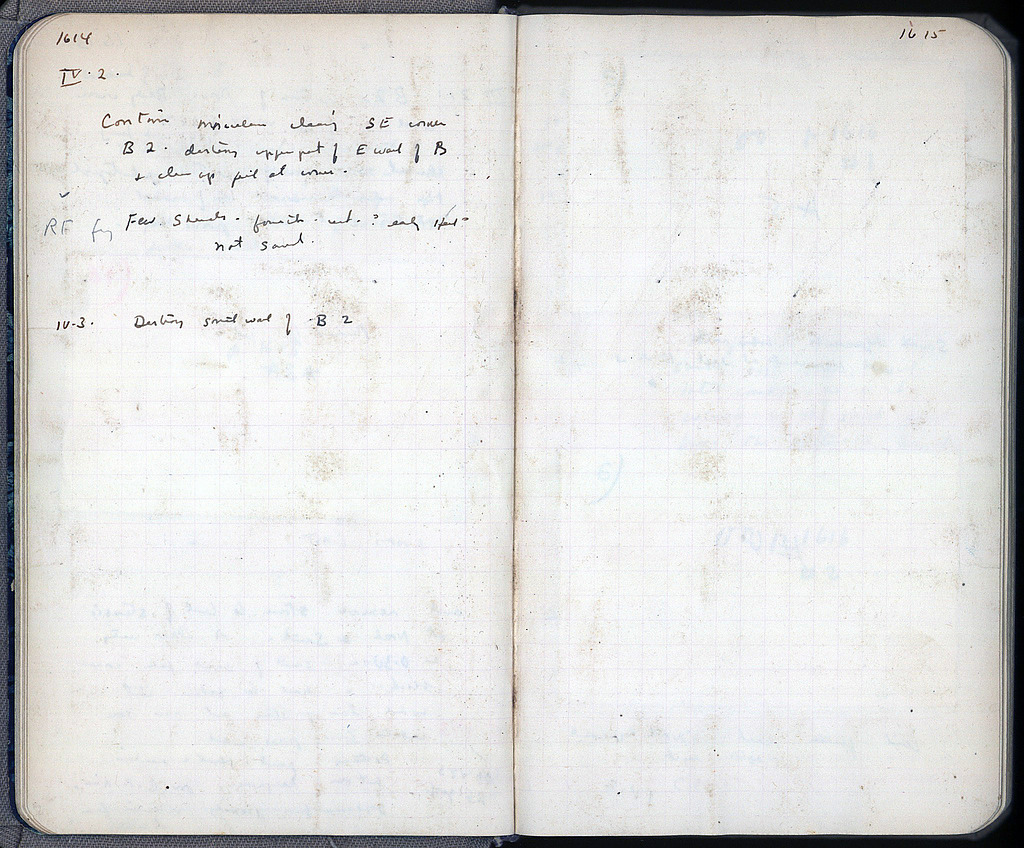 1614
IV. 2.
Contin miscellan cleaning SE corner
B 2. destroy upper part of E wall of B
+ clean up fill at corner.
RF Few sherds. fourth. cent. ? early
not saved.
IV-3. Destroy south wall of B 2
1615